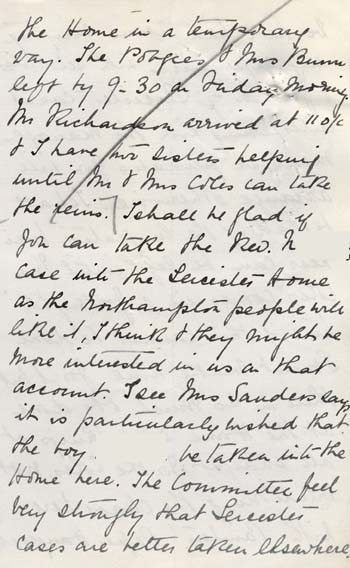 the Home in a temporary
way. The Podgees & Mrs Bunn
left by 9-30 on Friday Morning
Mr Richardson arrived at 11 o/c
& I have two sisters helping
until Mr & Mrs Coles can take
the reins. I shall be glad if
you can take the Rev. N
case into the Leicester Home
as the Northampton people will
like it, I think & they might be
more interested in us on that
account. I see Mrs Sanders says
it is particularly wished that
the boy be taken into the
Home here. The Committee feel
very strongly that Leicester
cases are better taken elsewhere,